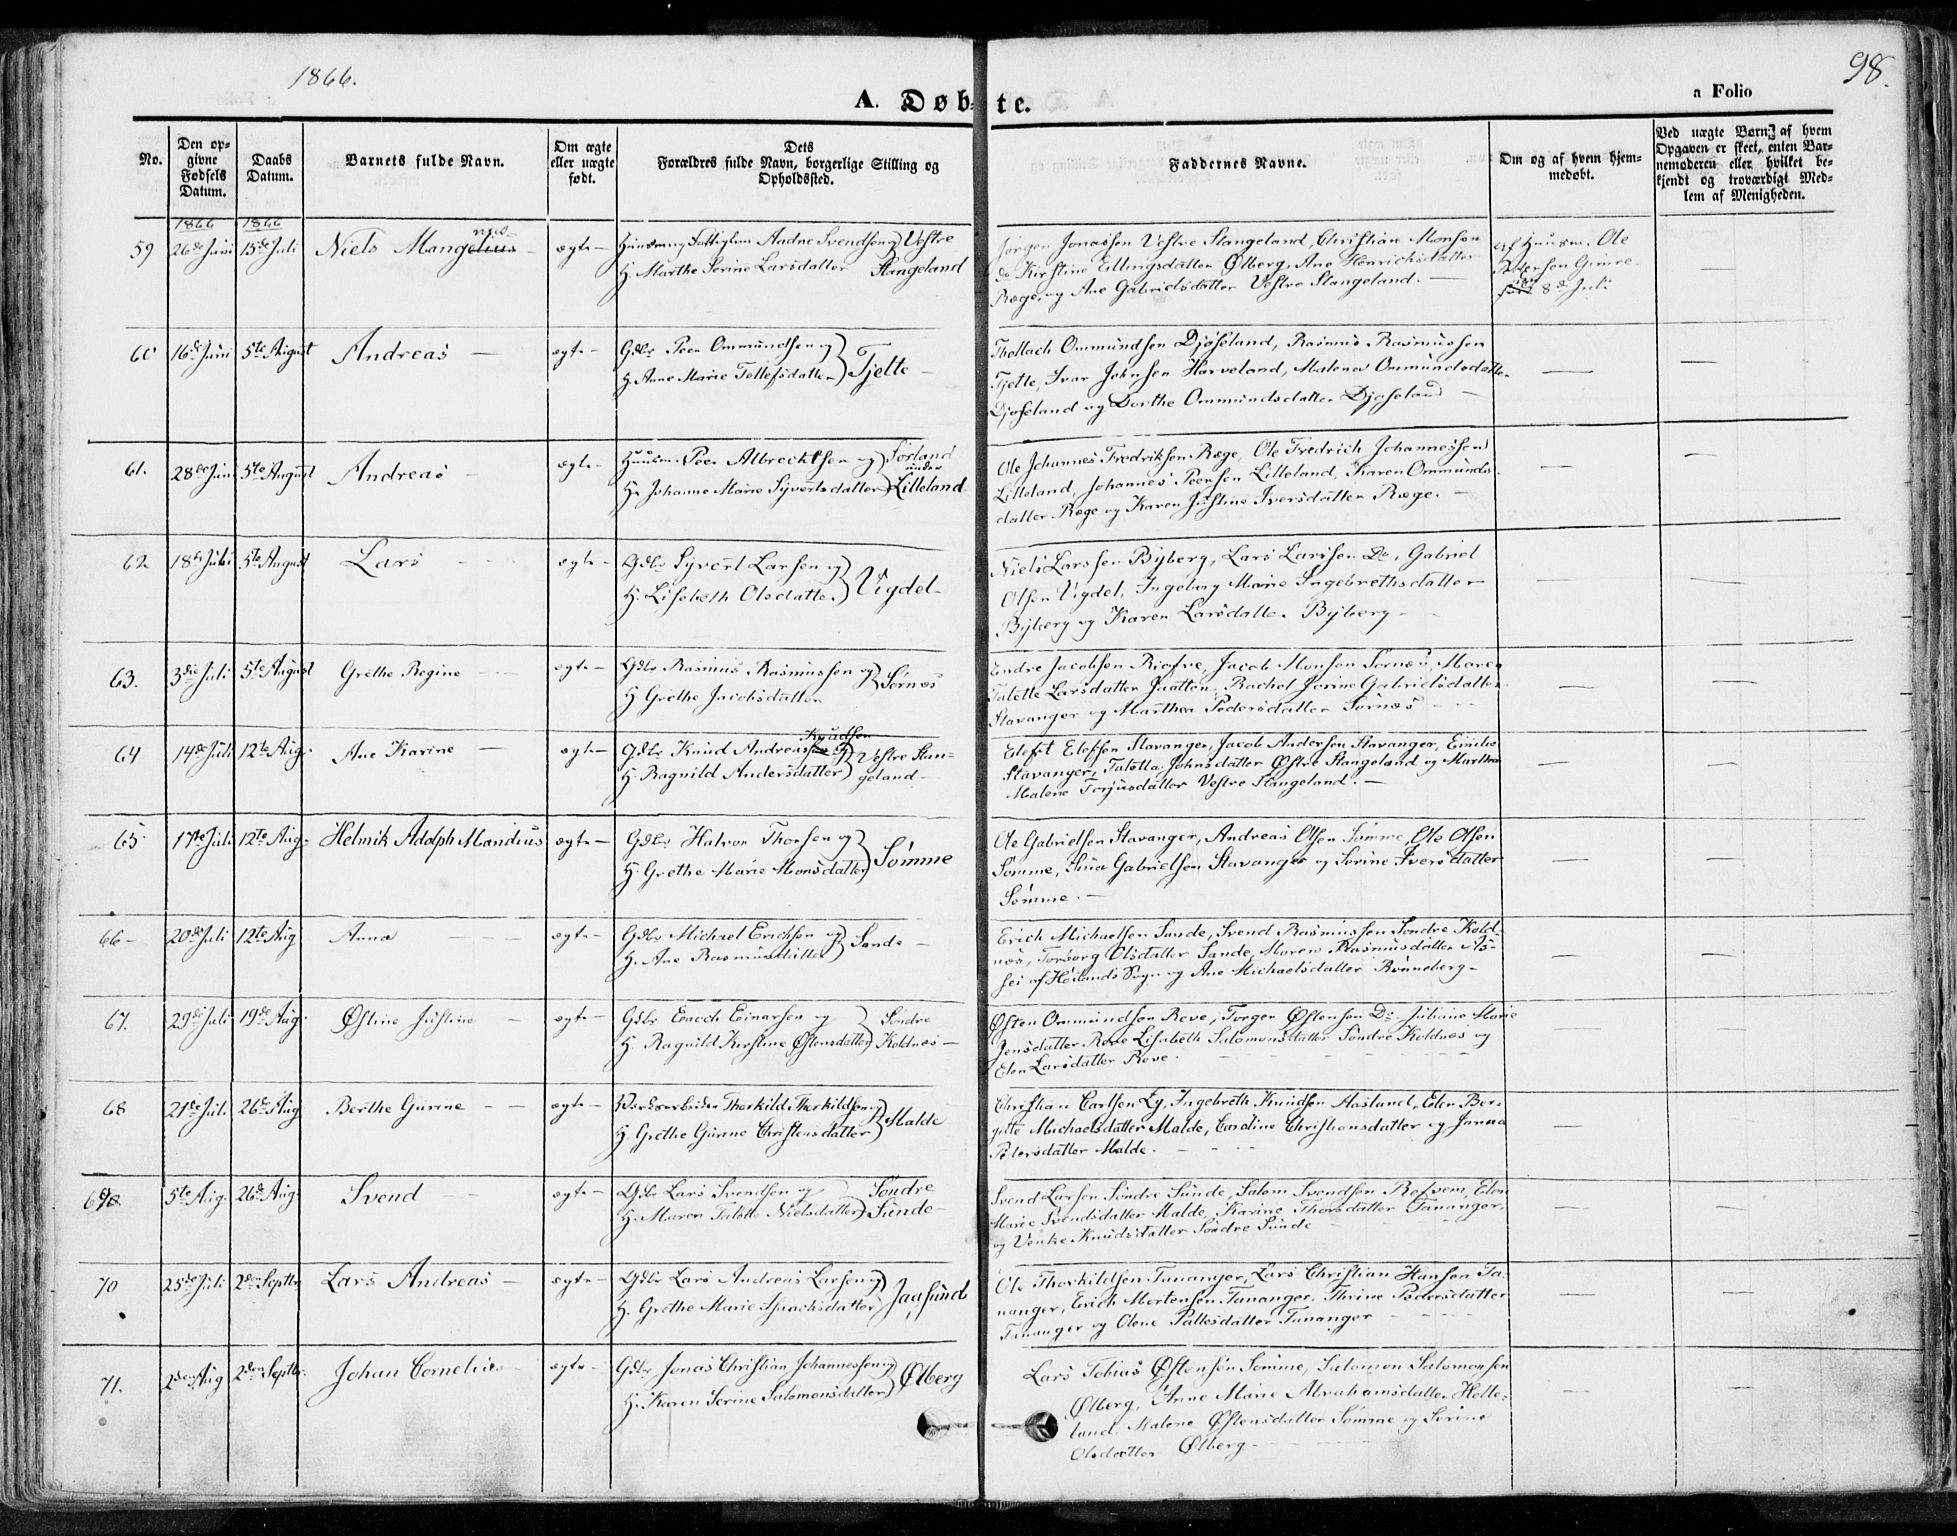 1866.
98.
A. Døbte.
a Folio
No.
Den op-
givne
Fødsels
Datum.
Daabs
Datum.
Barnets fulde Navn.
Om ægte
eller uægte
født.
Dets
Forældres fulde Navn, borgerlige Stilling og
Opholdssted.
Faddernes Navne.
Om og af hvem hjem-
medøbt.
Ved uægte Børn: af hvem
Opgaven er skeet, enten Bar-
nemoderen eller hvilket be-
kjendt og troværdigt Med-
lem af Menigheden.
1866 1866
59 26de Juni 15de Juli Niels Mangelius ægte Huusm. og Fattiglem Aadne Svendsen og Vestre
H. Marthe Serine Larsdatter Stangeland
Jørgen Jonassen Vestre Stangeland, Christian Monsen
do Kirstine Ellingsdatter Ølberg, Ane Henrichsdatter
Ræge, og Ane Gabrielsdatter Vestre Stangeland.
af Huusm. Ole
Pedersen Gimre
8de Juli
60 16de Juni 5te August Andreas ægte Gdbr Peer Ommundsen og
H. Anne Marie Tollefsdatter Tjelte
Thollach Ommundsen Djøseland, Rasmus Rasmussen
Tjelte, Ivar Johnsen Harveland, Malena Ommundsdatter
Djøseland og Dorthe Ommundsdatter Djøseland
61. 28de Juni 5te August Andreas ægte Huusm. Peer Albrechtsen og Sørland
under
H. Johanne Marie Syvertsdatter Lilleland
Ole Johannes Fredriksen Ræge, Ole Fredrich Johannessen
Lilleland, Johannes Peersen Lilleland, Karen Ommunds-
datter Ræge og Karen Justine Iversdatter Ræge.
62 18de Juli 5te August Lars ægte Gdbr Syvert Larsen og
H. Lisebeth Olsdatter Vigdel
Niels Larssen Byberg, Lars Larssen Do, Gabriel
Olsen Vigdel, Ingeborg Marie Ingebrethsdatter
Byberg og Karen Larsdatter Byberg
63. 3die Juli 5te August Grethe Regine ægte Gdbr Rasmus Rasmussen og
H. Grethe Jacobsdatter Sørnes
Endre Jacobsen Risfve, Jacob Monsen Sørnes, Maren
Talette Larsdatter Jaatten, Rachel Jorine Gabrielsdatter
Stavanger og Marthea Pedersdatter Sørnes
64 14de Juli 12te Aug. Ane Karine ægte Gdbr Knud Andreas Knudsen og Vestre Stan-
H. Ragnild Andersdatter geland
Eleft Elefsen Stavanger, Jacob Andersen Stavanger, Emilie
Stavanger, Taletta Johnsdatter Østre Stangeland og Martha
Malene Torjusdatter Vestre Stangeland.
65 17de Juli 12te Aug. Helmik Adolph Mandius ægte Gdbr Halvor Thorsen og
H. Grethe Marie Monsdatter Sømme
Ole Gabrielsen Stavanger, Andreas Olsen Sømme, Ole Olsen
Sømme, Sina Gabrielsen Stavanger og Serine Iversdatter
Sømme.
66 20de Juli 12te Aug Anna ægte Gdbr Michael Erichsen og
H. Ane Rasmusdatter Sande
Erich Michaelsen Sande, Svend Rasmussen Søndre Kold-
nes, Torborg Olsdatter Sande, Maren Rasmusdatter As-
sei af Høilands Sogn og Ane Michaelsdatter Rønneberg
67. 29de Juli 19de Aug. Østine Justine ægte Gdbr Enoch Einarsen og Søndre
H. Ragnild Kirstine Østensdatter Koldnes
Østen Ommundsen Reve, Torger Østensen Do Juliane Marie
Jensdatter Reve Lisabeth Salomonsdatter Søndre Koldnes og
Elen Larsdatter Reve.
68 21de Juli 26de Aug Berthe Gurine ægte Thorkild Thorkildsen og
H. Grethe Gurine Christensdatter Malde
Christian Carlsen Ly, Ingebreth Knudsen Aaslund, Elen Ber-
gitte Michaelsdatter Malde, Caroline Christiansdatter og Janna
Pedersdatter Malde.
69 5te Aug. 26de Aug Svend ægte Gdbr Lars Svendsen og Søndre
H. Maren Talette Nielsdatter Sunde
Svend Larsen Søndre Sunde, Salom Svendsen Refvem, Elen
Marie Svendsdatter Malde, Karine Thorsdatter Tananger,
og Venke Knudsdatter Søndre Sunde
70 25de Juli 2den Septbr Lars Andreas ægte Gdbr Lars Andreas Larsen og
H. Grethe Marie Isaachsdatter Jaasund
Ole Thorkildsen Tananger, Lars Christian Hansen Ta-
nanger, Erich Mortensen Tananger, Thrine Pedersdatter
Tananger og Olene Pallesdatter Tananger
71. 2den Aug 2den Septbr Johan Cornelius ægte Gdbr Jonas Christian Johannessen og
H. Karen Serine Salomonsdatter Ølberg
Lars Tobias Østensen Sømme, Salomon Salomonsen
Ølberg, Anne Marie Abrahamsdatter Helle-
land, Malene Østensdatter Sømme og Serine
Olsdatter Ølberg